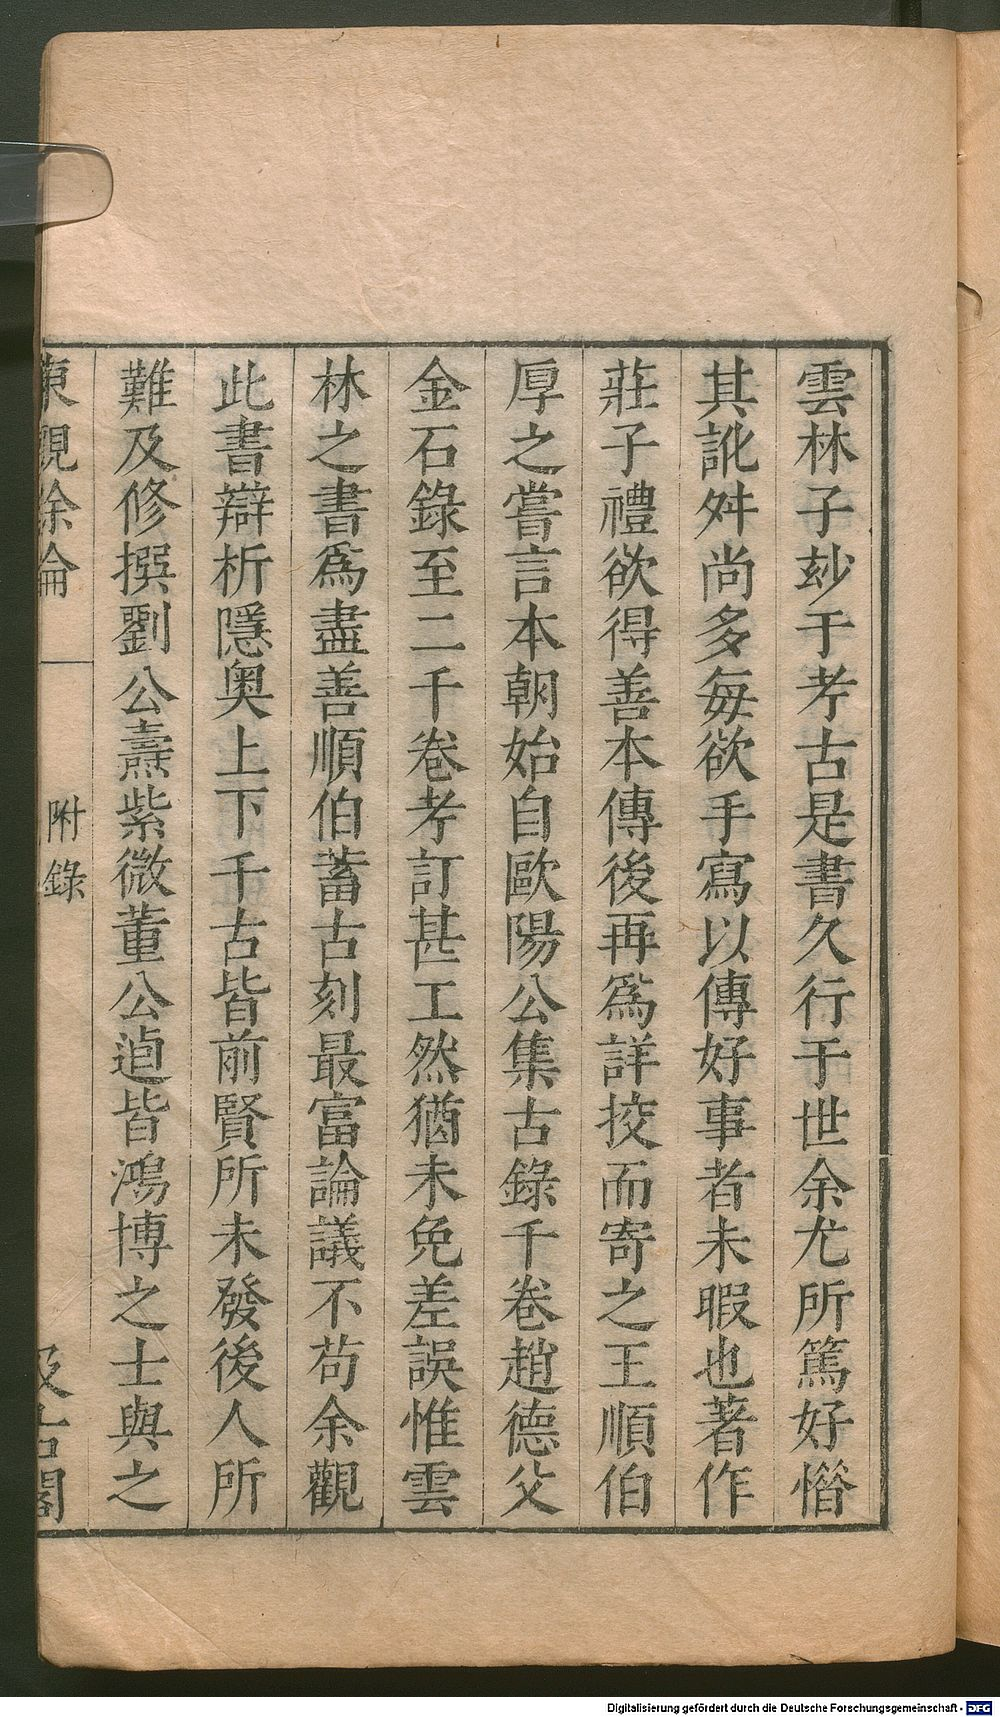 雲林子玅于考古是書久行于世余尤所篤好惜
其訛舛尚多每欲手寫以傳好事者未暇也著作
莊子禮欲得善本傳後再爲詳挍而寄之王順伯
厚之嘗言本朝始自歐陽公集古錄千卷趙德父
金石錄至二千卷考訂甚工然猶未免差誤惟雲
林之書爲盡善順伯蓄古刻最富論議不苟余觀
此書辯析隱奥上下千古皆前賢所未發後人所
難及修撰劉公燾紫微董公逌皆鴻博之士與之
東觀餘論 附錄 汲古閣
Digitalisierung gefördert durch die Deutsche Forschungsgemeinschaft - DFG